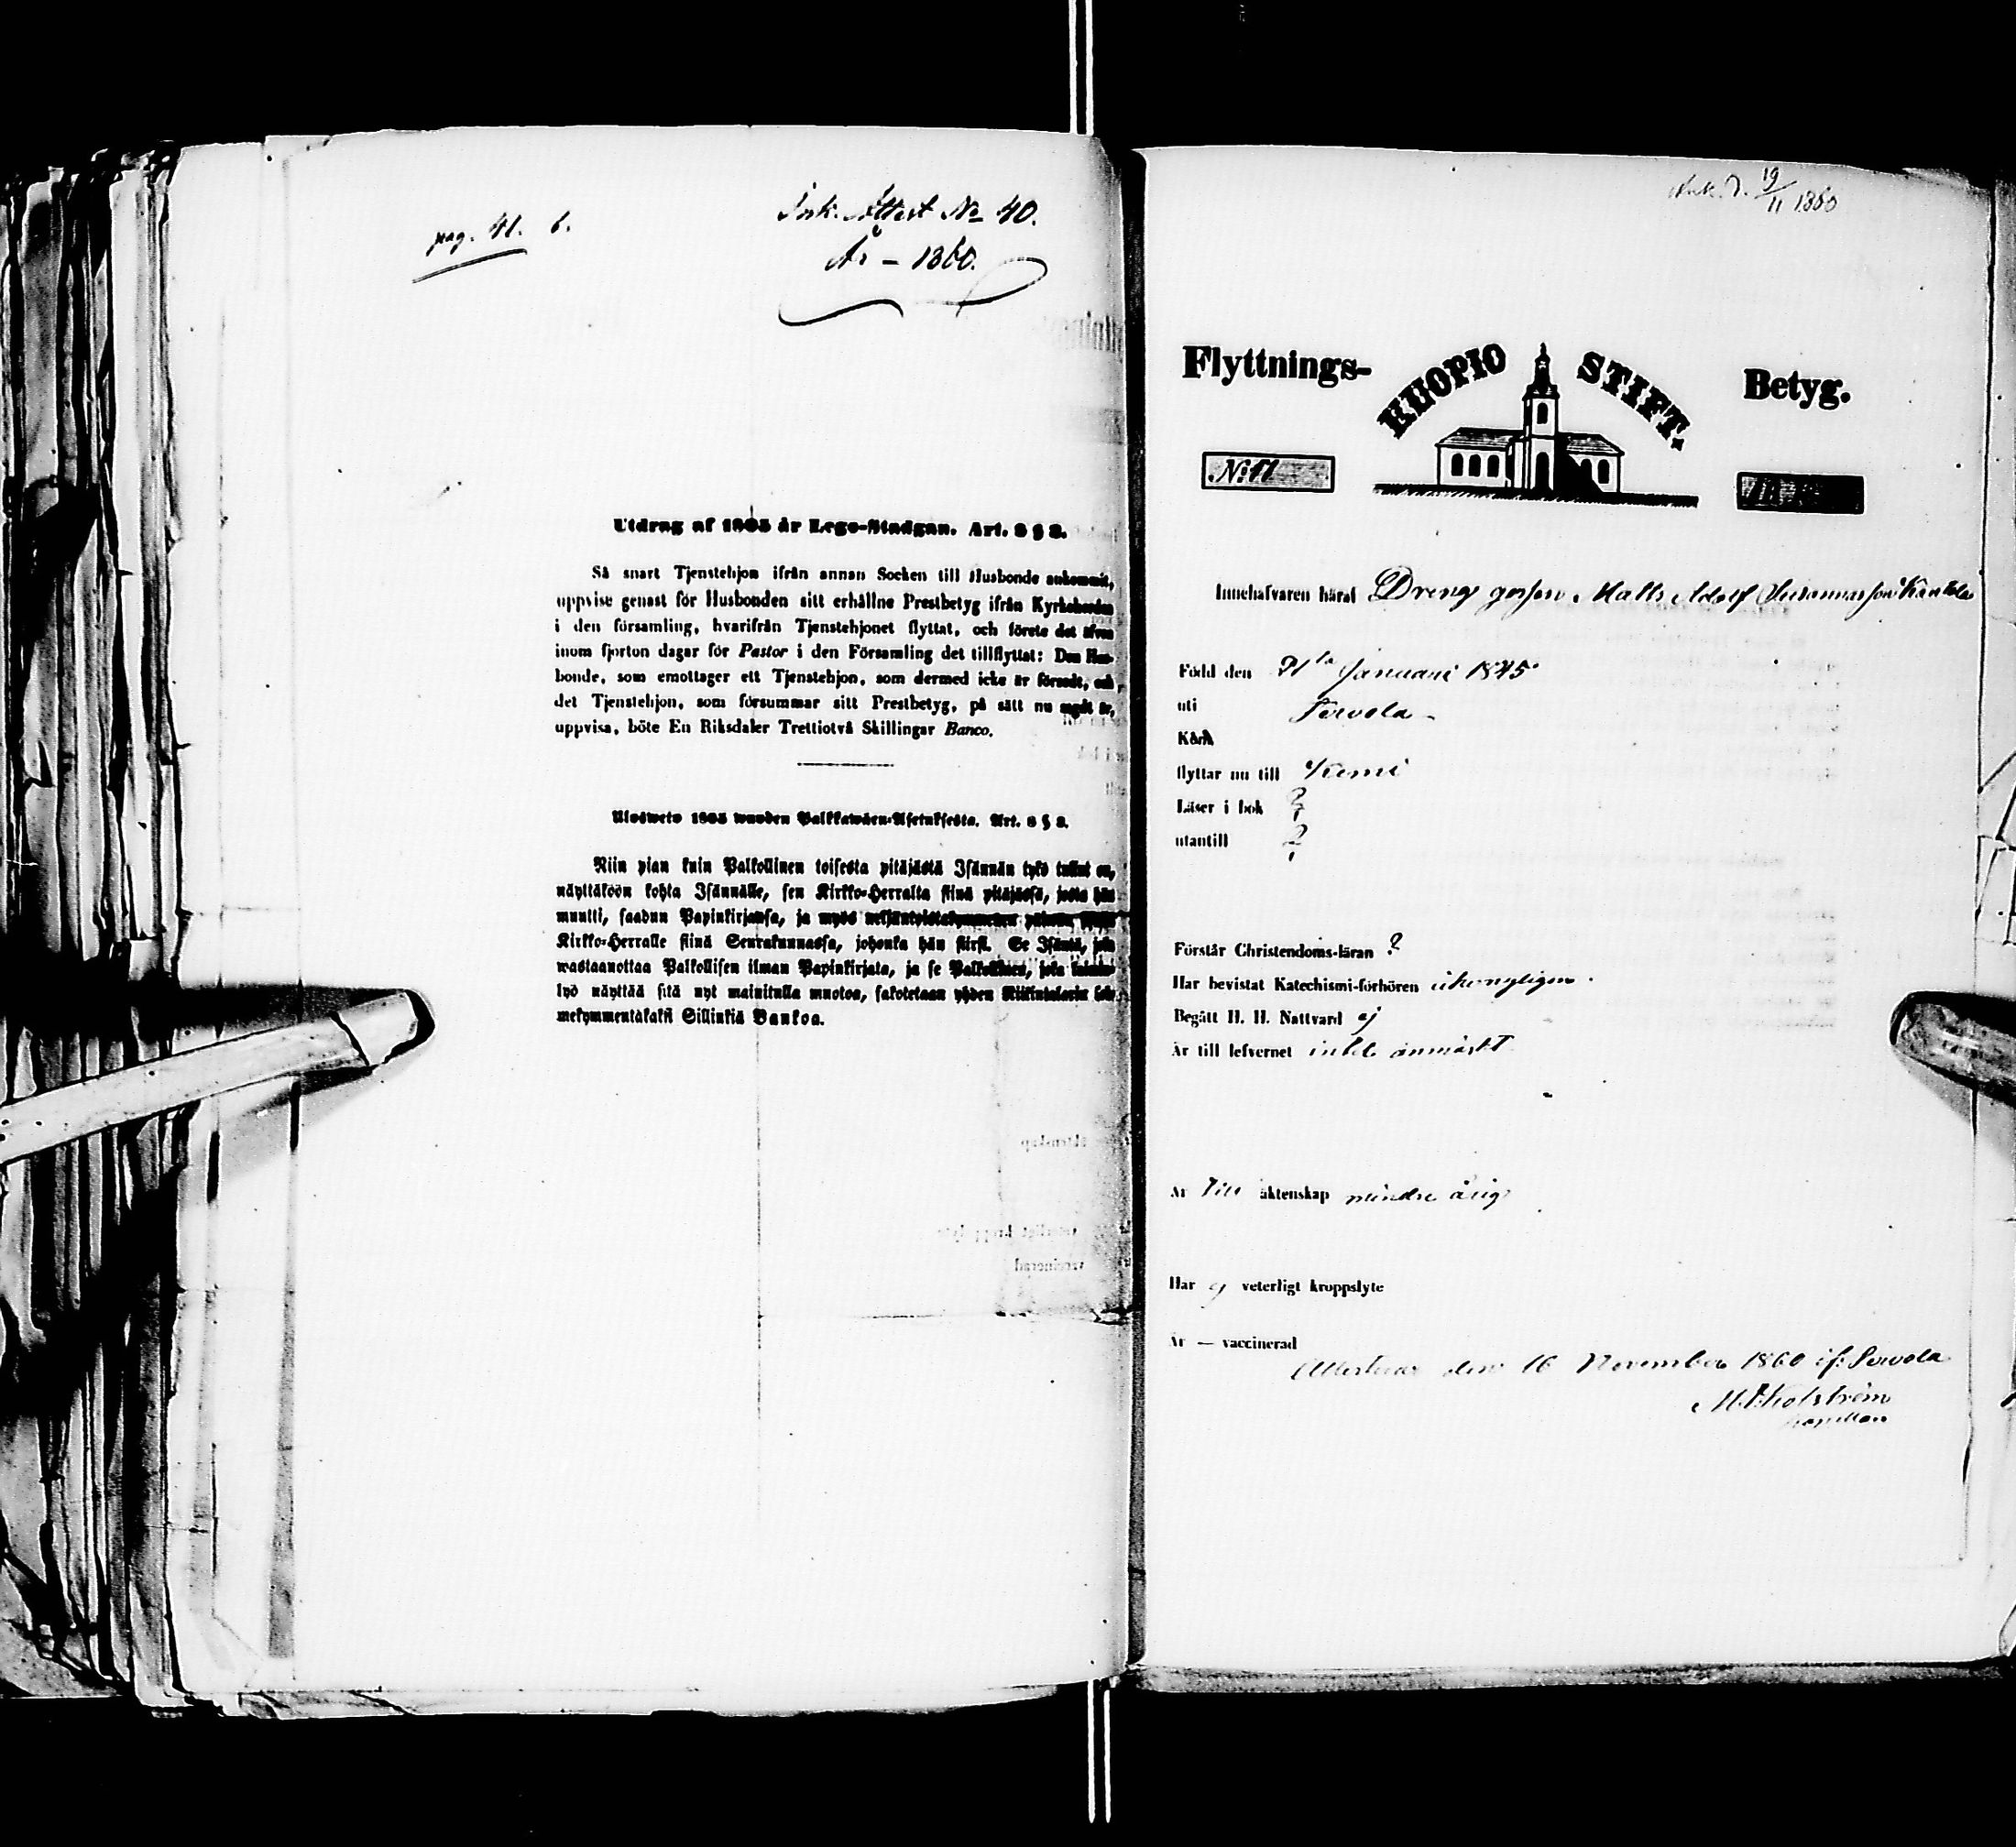 pag. 41. b.
Ink. Attest No 40.
År – 1860.
Utdrag af 1805 år Lego-Stadgan. Art. 8 § 8.
Så snart Tjenstehjon ifrån annan Socken till Husbonde ankommit,
uppvise genast för Husbonden sitt erhållne Prestbetyg ifrån Kyrkoherden
i den församling, hvarifrån Tjenstehjonet flyttat, och förete det äfven
inom fjorton dagar för Pastor i den Församling det tillflyttat: Den Hus-
bonde, som emottager ett Tjenstehjon, som dermed icke är försedt, och
det Tjenstehjon, som försummar sitt Prestbetyg, på sätt nu sagdt är,
uppvisa, böte En Riksdaler Trettiotvå Skillingar Banco.
Ulosweto 1805 wuoden Palkkawäen-Asetuksesta. Art. 8 § 8.
Niin pian kuin Palkollinen toisesta pitäjästä Isännän tykö tullut on,
näyttäköön kohta Isännälle, sen Kirkko-Herralta siinä pitäjässä, josta hän
muutti, saadun Papinkirjansa, ja myös neljäntoistakymmenen päiwän
Kirkko-Herralle siinä Seurakunnassa, johonka hän siirsi. Se Isäntä, joka
wastaanottaa Palkollisen ilman Papinkirjata, ja se Palkollinen, joka
lyö näyttää sitä nyt mainitulla muotoa, sakotetaan yhden Riikintalarin
mekymmentäkaksi Sillinkiä Bankoa.
Ank. d. 19/11 1860
Flyttnings- KUOPIO STIFT. Betyg.
N:o 41
Innehafvaren häraf Dreng gossen Matts Adolf Susannasson Kantola
Född den 21 Januari 1845
uti Tervola
Kom
flyttar nu till Kemi
Läser i bok
utantill
Förstår Christendoms-läran
Har bevistat Katechismi-förhören
Begått H. H. Nattvard ej
Är till lefvernet intet anmärkt
Är till äktenskap minder årig
Har ej veterligt kroppslyte
Är — vaccinerad
Attesteras den 16 November 1860 if: Tervola